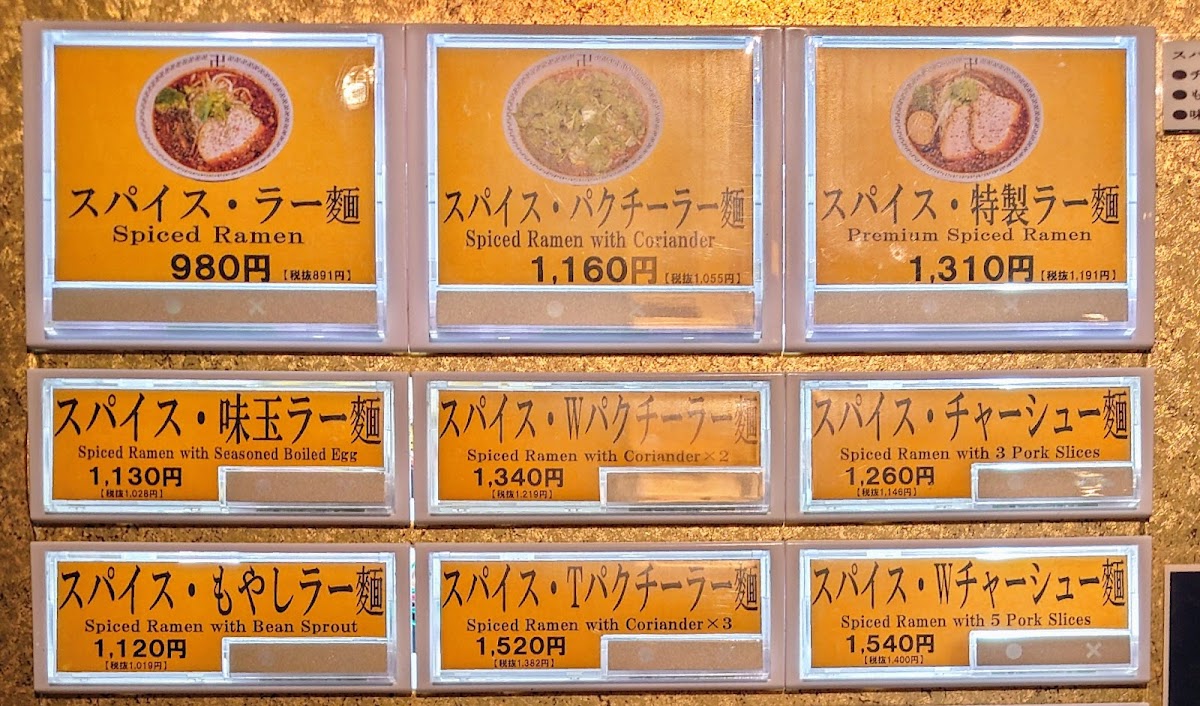 スパイス・ラー麵
Spiced Ramen
980円【税抜891円】
スパイス・パクチーラー麵
Spiced Ramen with Coriander
1,160円【税抜1,055円】
スパイス・特製ラー麵
Premium Spiced Ramen
1,310円【税抜1,191円】
スパイス・味玉ラー麵
Spiced Ramen with Seasoned Boiled Egg
1,130円
【税抜1,028円】
スパイス・Wパクチーラー麵
Spiced Ramen with Coriander×2
1,340円
【税抜1,219円】
スパイス・チャーシュー麵
Spiced Ramen with 3 Pork Slices
1,260円
【税抜1,146円】
スパイス・もやしラー麵
Spiced Ramen with Bean Sprout
1,120円
【税抜1,019円】
スパイス・Tパクチーラー麵
Spiced Ramen with Coriander×3
1,520円
【税抜1,382円】
スパイス・Wチャーシュー麵
Spiced Ramen with 5 Pork Slices
1,540円
【税抜1,400円】